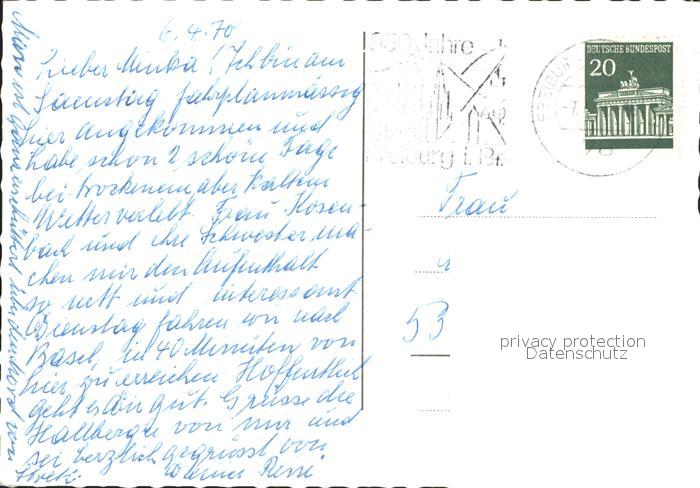 6.4.70
Lieber Minka! Ich bin am
Samstag fahrplanmässig
hier angekommen und
habe schon 2 schöne Tage
bei trockenem aber kaltem
Wetter verlebt. Frau Rosen-
bach und ihre Schwester ma-
chen mir den Aufenthalt
so nett und interessant
Dienstag fahren wir nach
Basel, in 40 Minuten von
hier zu erreichen Hoffentlich
geht es Dir gut. Grüsse die
Hallberge von mir und
sei herzlich gegrüsst von
Deiner
850 Jahre
Freiburg i. Br.
FREIBURG
78
DEUTSCHE BUNDESPOST
20
Frau
53
privacy protection
Datenschutz